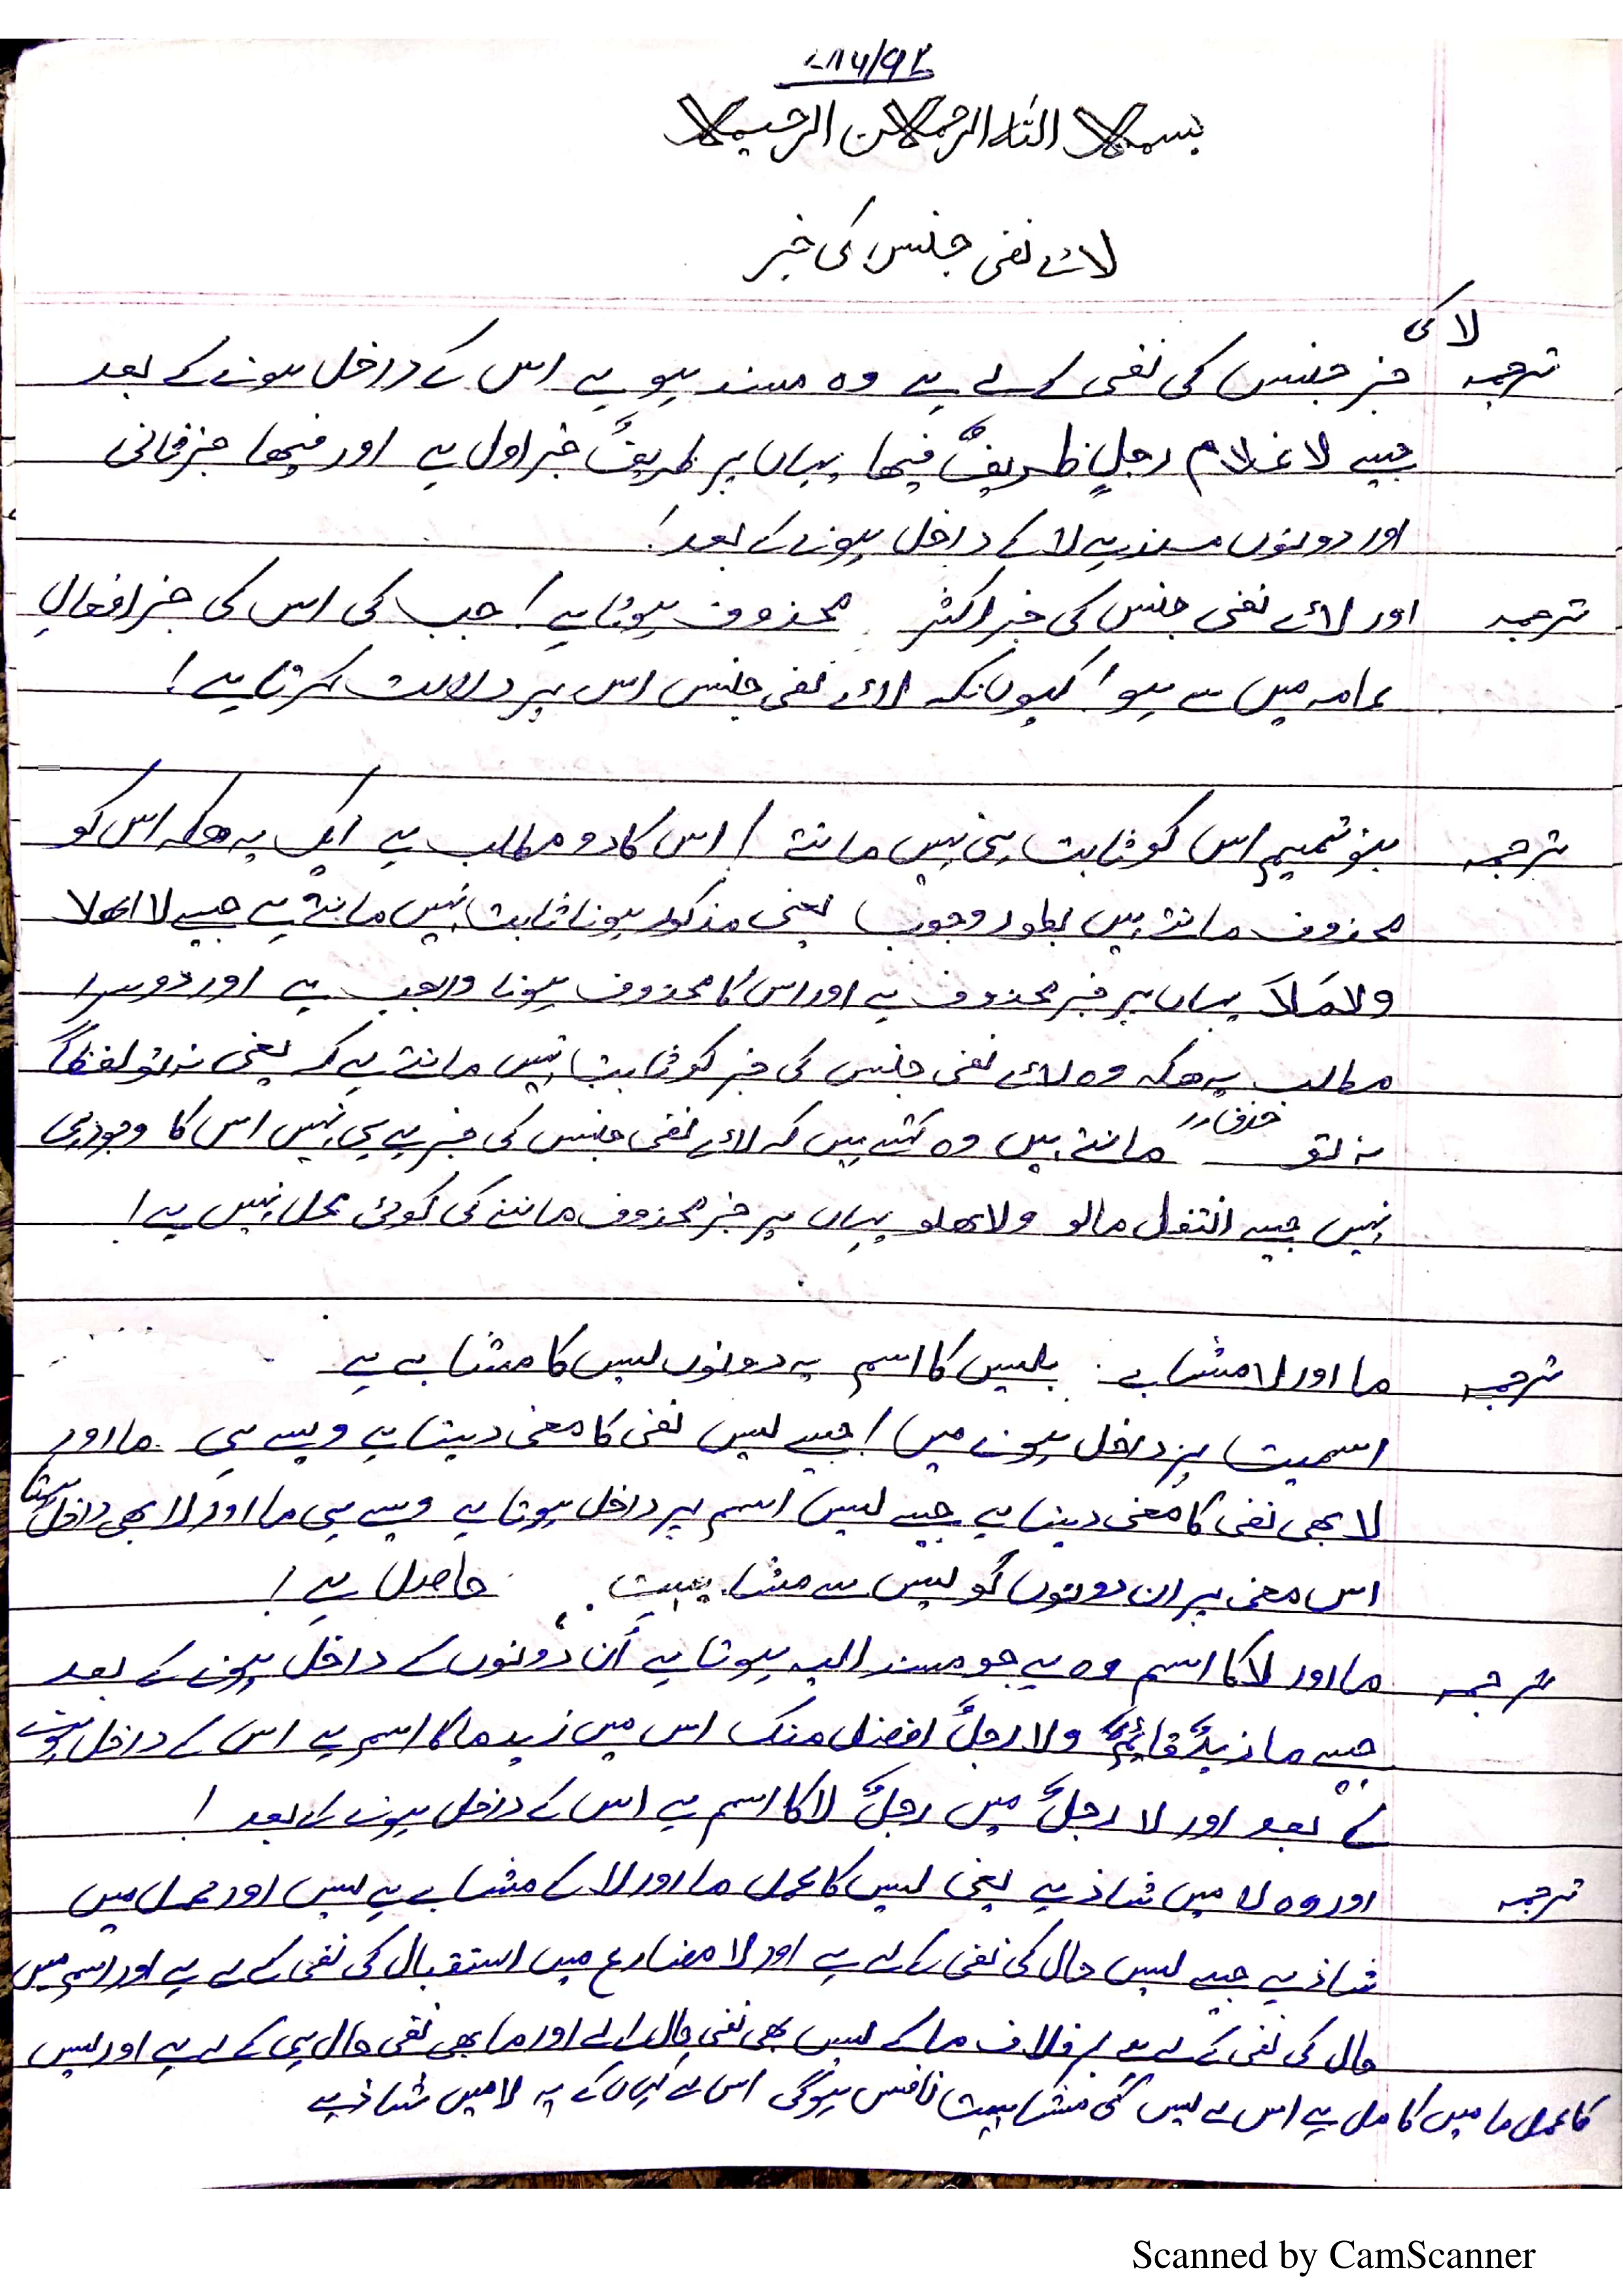 ۷۸۶/۹۲
بسم اللہ الرحمن الرحیم
لائے نفی جنس کی خبر
لا کی
ترجمہ خبر جنس کی نفی کے لے ہے وہ مسند ہو ہے اس کے داخل ہونے کے بعد
جیسے لا غلام رجلٍ ظریفٌ فیھا یہاں پر ظریفٌ خبر اول ہے اور فیھا خبر ثانی
اور دونوں مسند ہے لا کے داخل ہونے کے بعد!
ترجمہ اور لائے نفی جنس کی خبر اکثر محذوف ہوتا ہے! جب کی اس کی خبر افعالِ
عامہ میں سے ہو! کیوں نکہ لائے نفی جنس اس پر دلالت کرتا ہے!
ترجمہ بنو تمیم اس کو ثابت ہی نہیں مانتے / اس کا دو مطالب ہے ایک یہ ھیکہ اس کو
محذوف مانتے ہیں بطور وجوب یعنی مذکور ہونا ثابت نہیں مانتے ہے جیسے لا اھلا
ولا مَلاَ یہاں پر خبر محذوف ہے اور اس کا محذوف ہونا واجب ہے اور دوسرا
مطالب یہ ھکہ وہ لائے نفی جنس کی خبر کو ثابت نہیں مانتے ہے کہ یعنی نہ تو لفظاً
نہ تو مانتے ہیں وہ کہتے ہیں کہ لائے نفی جنس کی خبر ہے ہی نہیں اس کا وجود ہی
نہیں جیسے انتفل مالو ولاھلو یہاں پر خبر محذوف ماننے کی کوئی محل نہیں ہے!
ترجمہ ما اور لا مشابے بلیس کا اسم یہ دونوں لیس کا مشابے ہے
اسمیت پر داخل ہونے میں / جیسے لیس نفی کا معنی دیتا ہے ویسے ہی ما اور
لا بھی نفی کا معنی دیتا ہے جیسے لیس اسم پر داخل ہوتا ہے ویسے ہی ما اور لا بھی داخل ہوتا
اس معنی پر ان دونوں کو لیس سے مشابہت حاصل ہے!
ترجمہ ما اور لا کا اسم وہ ہے جو مسند الیہ ہوتا ہے ان دونوں کے داخل ہونے کے بعد
جیسے ما زیدٌ قائمًا ولا رجلٌ افضل منک اس میں زید ما کا اسم ہے اس کے داخل ہونے
کے بعد اور لا رجلٌ میں رجلٌ لا کا اسم ہے اس کے داخل ہونے کے بعد !
ترجمہ اور وہ لا میں شاذ ہے یعنی لیس کا عمل ما اور لا کے مشابے ہے لیس اور عمل میں
شاذ ہے جیسے لیس حال کی نفی کے لے ہے اور لا مضارع میں استقبال کی نفی کے لے ہے اور اسم میں
حال کی نفی کے لے ہے بر خلاف ما کے لیس بھی نفی حال اے اور ما بھی نفی حال ہی کے لے ہے اور لیس
کا عمل ما میں کامل ہے اس لے لیس کی مشابہت ناقص ہوگی اس لے یہ لا میں شاذ ہے
Scanned by CamScanner